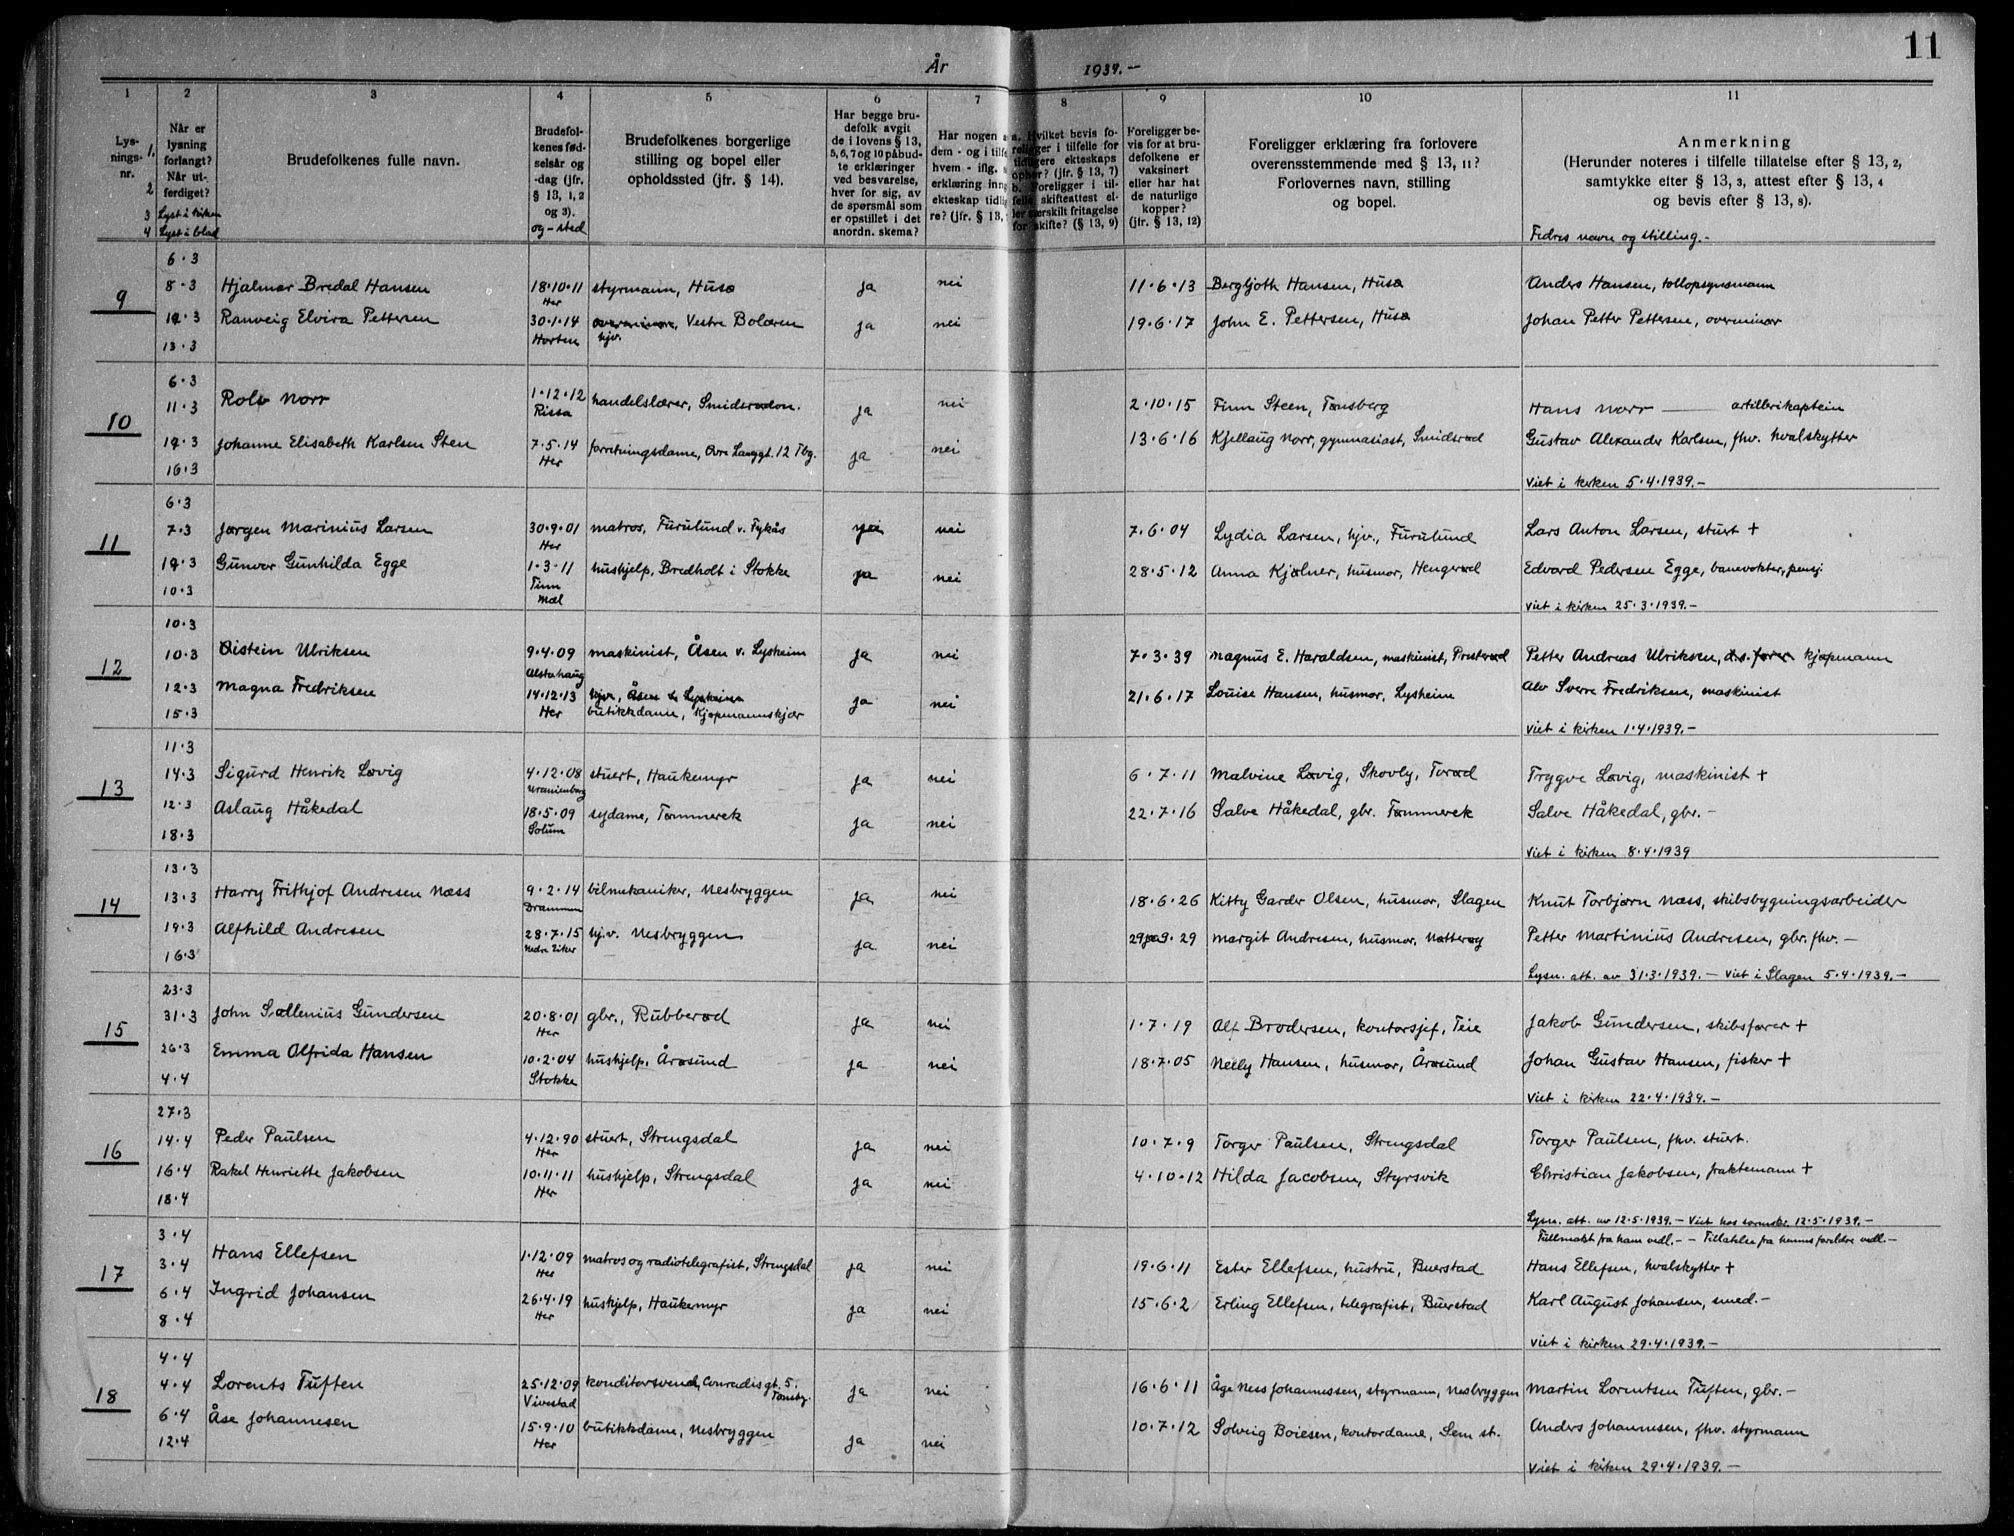 11
År 1939.-
1 2 3 4 5 6 7 8 9 10 11
Lys-
nings-
nr.
1. Når er
lysning
forlangt?
2 Når ut-
ferdiget?
3 Lyst i kirken
4 Lyst i blad
Brudefolkenes fulle navn.
Brudefol-
kenes fød-
selsår og
-dag (jfr.
§ 13, 1, 2
og 3).
og - sted
Brudefolkenes borgerlige
stilling og bopel eller
opholdssted (jfr. § 14).
Har begge bru-
defolk avgit
de i lovens § 13,
5, 6, 7 og 10 påbud-
te erklæringer
ved besvarelse,
hver for sig, av
de spørsmål som
er opstillet i det
anordn. skema?
Har nogen a
dem - og i tilfe
hvem - iflg.
erklæring inng
ekteskap tidlig
re? (jfr. § 13,
a. Hvilket bevis fo-
religger i tilfelle for
tidligere ekteskaps
ophør? (jfr. § 13, 7)
b. Foreligger i til-
felle skifteattest el-
ler særskilt fritagelse
for skifte? (§ 13, 9)
Foreligger be-
vis for at bru-
defolkene er
vaksinert
eller har hat
de naturlige
kopper?
(jfr. § 13, 12)
Foreligger erklæring fra forlovere
overensstemmende med § 13, 11?
Forlovernes navn, stilling
og bopel.
Anmerkning
(Herunder noteres i tilfelle tillatelse efter § 13, 2,
samtykke efter § 13, 3, attest efter § 13, 4
og bevis efter § 13, 8).
Fedres navn og stilling.-
6.3
9 8.3 Hjalmar Bredal Hansen 18.10.11 styrmann, Husø ja nei 11.6.13 Bergljoth Hansen, Husø Anders Hansen, tollopsynsmann
Her
12.3 Ranveig Elvira Pettersen 30.1.14 overminør, Vestre Bolæren ja nei 19.6.17 John E. Pettersen, Husø Johan Petter Pettersen, overminør
Horten hjv.
13.3
6.3
10 11.3 Rolv Norr 1.12.12 handelslærer, Smidsrødon. ja nei 2.10.15 Finn Steen, Tønsberg Hans Norr — artillerikaptein
Rissa
12.3 Johanne Elisabeth Karlsen Sten 7.5.14 forretningsdame, Øvre Langgt. 12 Tbg. ja nei 13.6.16 Kjellaug Norr, gymnasiast, Smidsrød Gustav Alexander Karlsen, fhv. hvalskytter
Her
16.3 Viet i kirken 5.4.1939.-
6.3
11 7.3 Jørgen Marinius Larsen 30.9.01 matros, Furulund v. Fykås ja nei 7.6.04 Lydia Larsen, hjv., Furulund Lars Anton Larsen, stuert +
Her
12.3 Gunvor Gunhilda Egge 1.3.11 hushjelp, Bredholt i Stokke ja nei 28.5.12 Anna Kjølner, husmor, Hengerød Edvard Pedersen Egge, banevokter, pensj.
Tinn
Mæl
10.3 Viet i kirken 25.3.1939.-
10.3
12 10.3 Øistein Ulriksen 9.4.09 maskinist, Åsen v. Lysheim ja nei 7.3.39 Magnus E. Haraldsen, maskinist, Presterød Petter Andreas Ulriksen, ds. fører kjøpmann
Alstahaug
12.3 Magna Fredriksen 14.12.13 hjv., Åsen v. Lysheim ja nei 21.6.17 Louise Hansen, husmor, Lysheim Alv Sverre Fredriksen, maskinist
Her butikkdame, Kjøpmannskjær
15.3 Viet i kirken 1.4.1939.-
11.3
13 14.3 Sigurd Henrik Løvig 4.12.08 stuert, Haukemyr ja nei 6.7.11 Malvine Løvig, Skovly, Torød Trygve Løvig, maskinist +
Uranienborg
12.3 Aslaug Håkedal 18.5.09 sydame, Tømmerek ja nei 22.7.16 Salve Håkedal, gbr. Tømmerek Salve Håkedal, gbr.-
Solum
18.3 Viet i kirken 8.4.1939
13.3
14 13.3 Harry Frithjof Andresen Næss 9.2.14 bilmekaniker, Nesbryggen ja nei 18.6.26 Kitty Garder Olsen, husmor, Slagen Knut Torbjørn Næss, skibsbygningsarbeider
Drammen
19.3 Alfhild Andresen 28.7.15 hjv. Nesbryggen ja nei 29.9.29 Margit Andresen, husmor, Nøtterøy Petter Martinius Andresen, gbr. fhv.-
Nedre Eiker
16.3 Lysn. att. av 31.3.1939.- Viet i Slagen 5.4.1939.-
23.3
15 31.3 John Sallenius Gundersen 20.8.01 gbr., Rubberød ja nei 1.7.19 Alf Brodersen, kontorsjef, Teie Jakob Gundersen, skibsfører +
Her
26.3 Emma Alfrida Hansen 10.2.04 hushjelp, Årøsund ja nei 18.7.05 Nelly Hansen, husmor, Årøsund Johan Gustav Hansen, fisker +
Stokke
4.4 Viet i kirken 22.4.1939.-
27.3
16 14.4 Peder Paulsen 4.12.90 stuert, Strengsdal ja nei 10.7.9 Torger Paulsen, Strengsdal Torger Paulsen, fhv. stuert.
Her
16.4 Rakel Henriette Jakobsen 10.11.11 hushjelp, Strengsdal ja nei 4.10.12 Hilda Jacobsen, Styrsvik Christian Jakobsen, fraktemann +
Her
18.4 Lysn. att. av 12.5.1939.- Viet hos sorenskr. 12.5.1939.-
3.4 Fullmakt fra ham vedl.- - Tillatelse fra hennes foreldre vedl.-
17 3.4 Hans Ellefsen 1.12.09 matros og radiotelegrafist, Strengsdal ja nei 19.6.11 Ester Ellefsen, hustru, Buerstad Hans Ellefsen, hvalskytter +
Her
6.4 Ingrid Johansen 26.4.19 hushjelp, Haukemyr ja nei 15.6.2 Erling Ellefsen, telegrafist, Buerstad Karl August Johansen, smed.-
Her
8.4 Viet i kirken 29.4.1939.-
4.4
18 4.4 Lorents Tuften 25.12.09 konditorsvend, Conradisgt. 5. Tønsbg. ja nei 16.6.11 Åge Ness Johannessen, styrmann, Nesbryggen Martin Lorentsen Tuften, gbr.-
Vivestad
6.4 Åse Johannesen 15.9.10 butikkdame, Nesbryggen ja nei 10.7.12 Solveig Boiesen, kontordame, Sem st. Anders Johannesen, fhv. styrmann
Her
12.4 Viet i kirken 29.4.1939.-